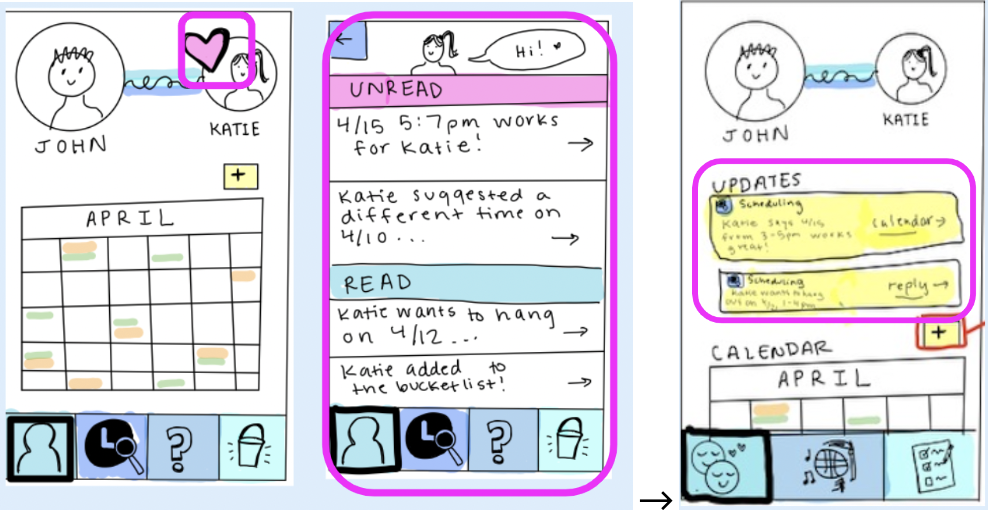 JOHN
KATIE
+
APRIL
←
Hi! ♥
UNREAD
4/15 5:7pm works
for Katie! →
Katie suggested a
different time on
4/10... →
READ
Katie wants to hang
on 4/12... →
Katie added to
the bucketlist! →
?
?
→
JOHN
KATIE
UPDATES
Scheduling
Katie says 4/15
from 3-5pm works
great!
calendar→
Scheduling
Katie wants to hang
out on 1-4pm
reply →
+
CALENDAR
APRIL